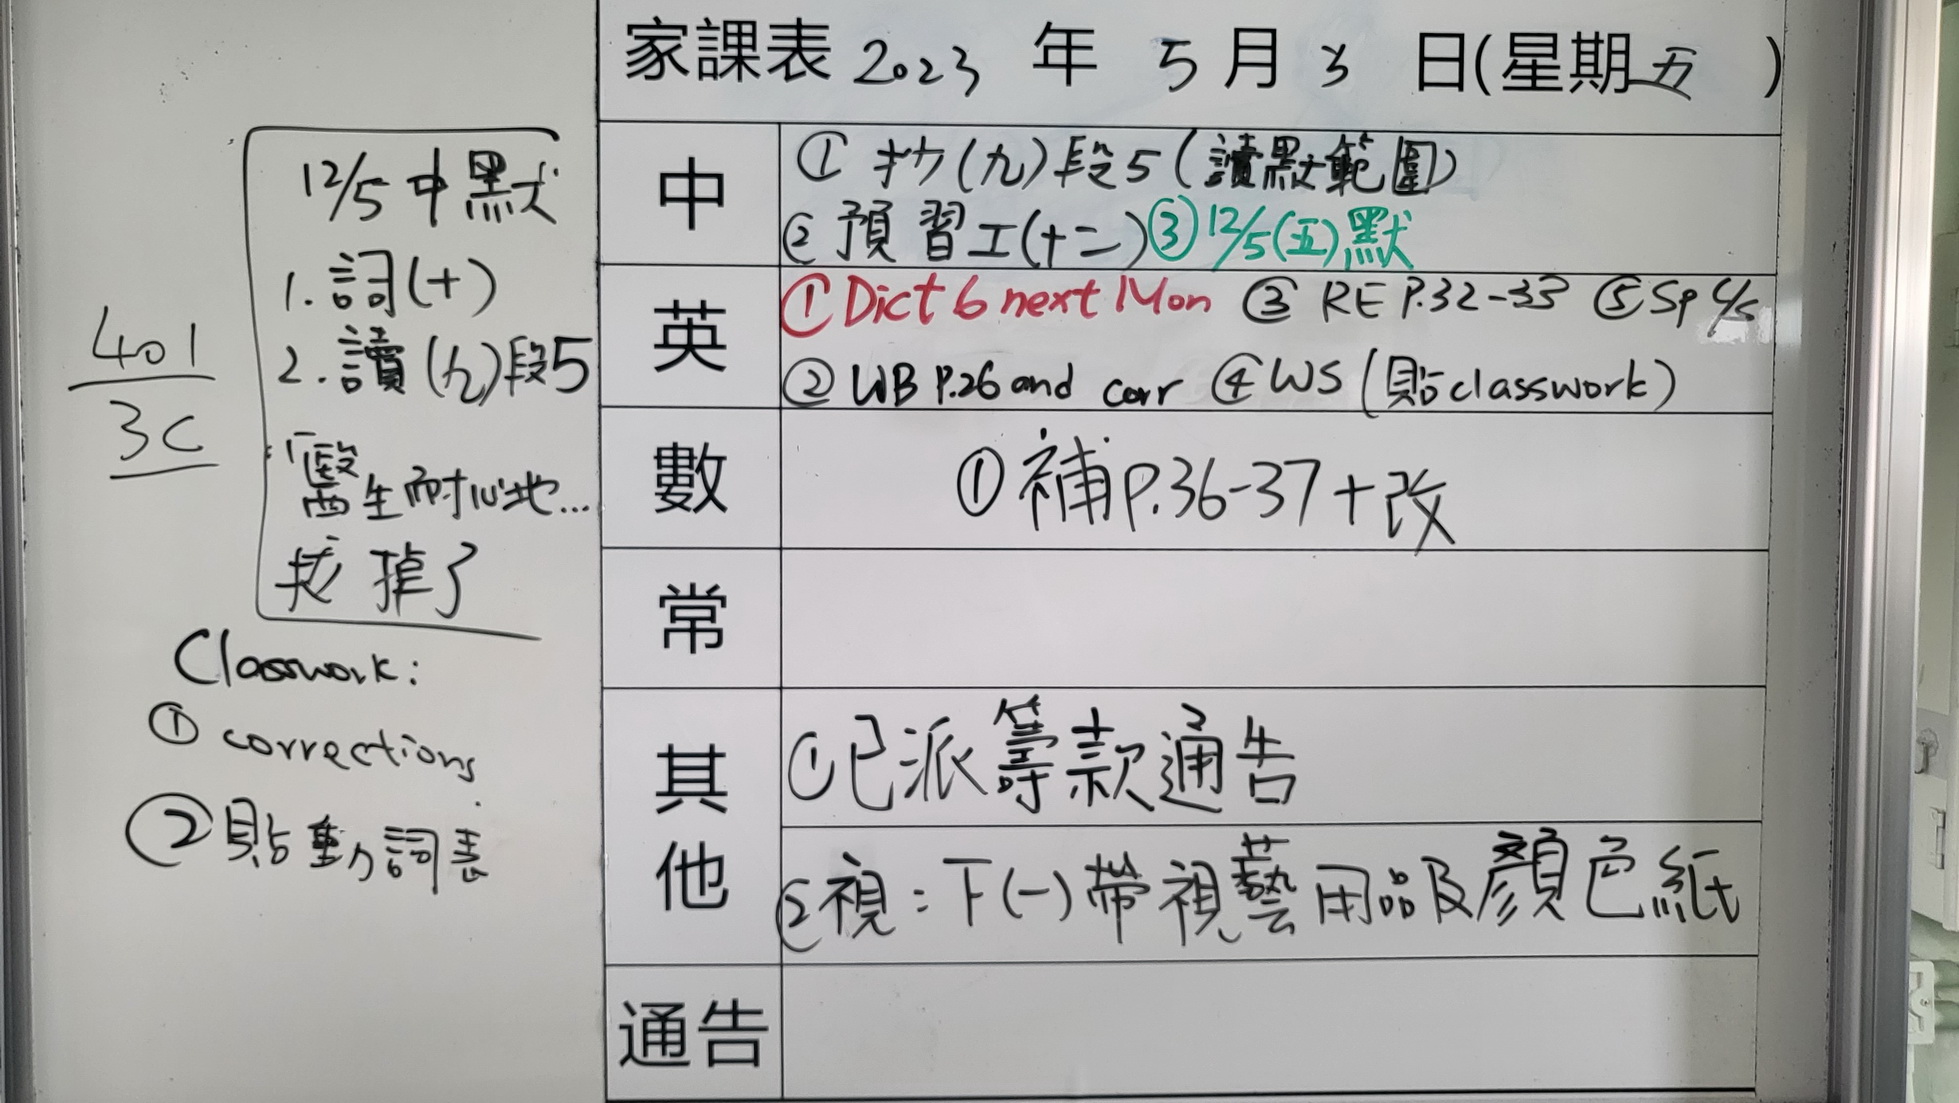 家課表 2023 年 5 月 3 日(星期五)
中
① 抄(九)段5(讀默範圍)
② 預習工(十二)③12/5(五)默
英
①Dict 6 next Mon ③ RE P.32-33 ⑤Sp
② WB P.26 and corr ④WS(貼classwork)
數
①補P.36-37+改
常
其他
①已派籌款通告
②視:下(一)帶視藝用品及顏色紙
通告
12/5中默
1.詞(十)
2.讀(九)段5
「醫生耐心地...
拔掉了
401
3C
Classwork:
① corrections
②貼動詞表